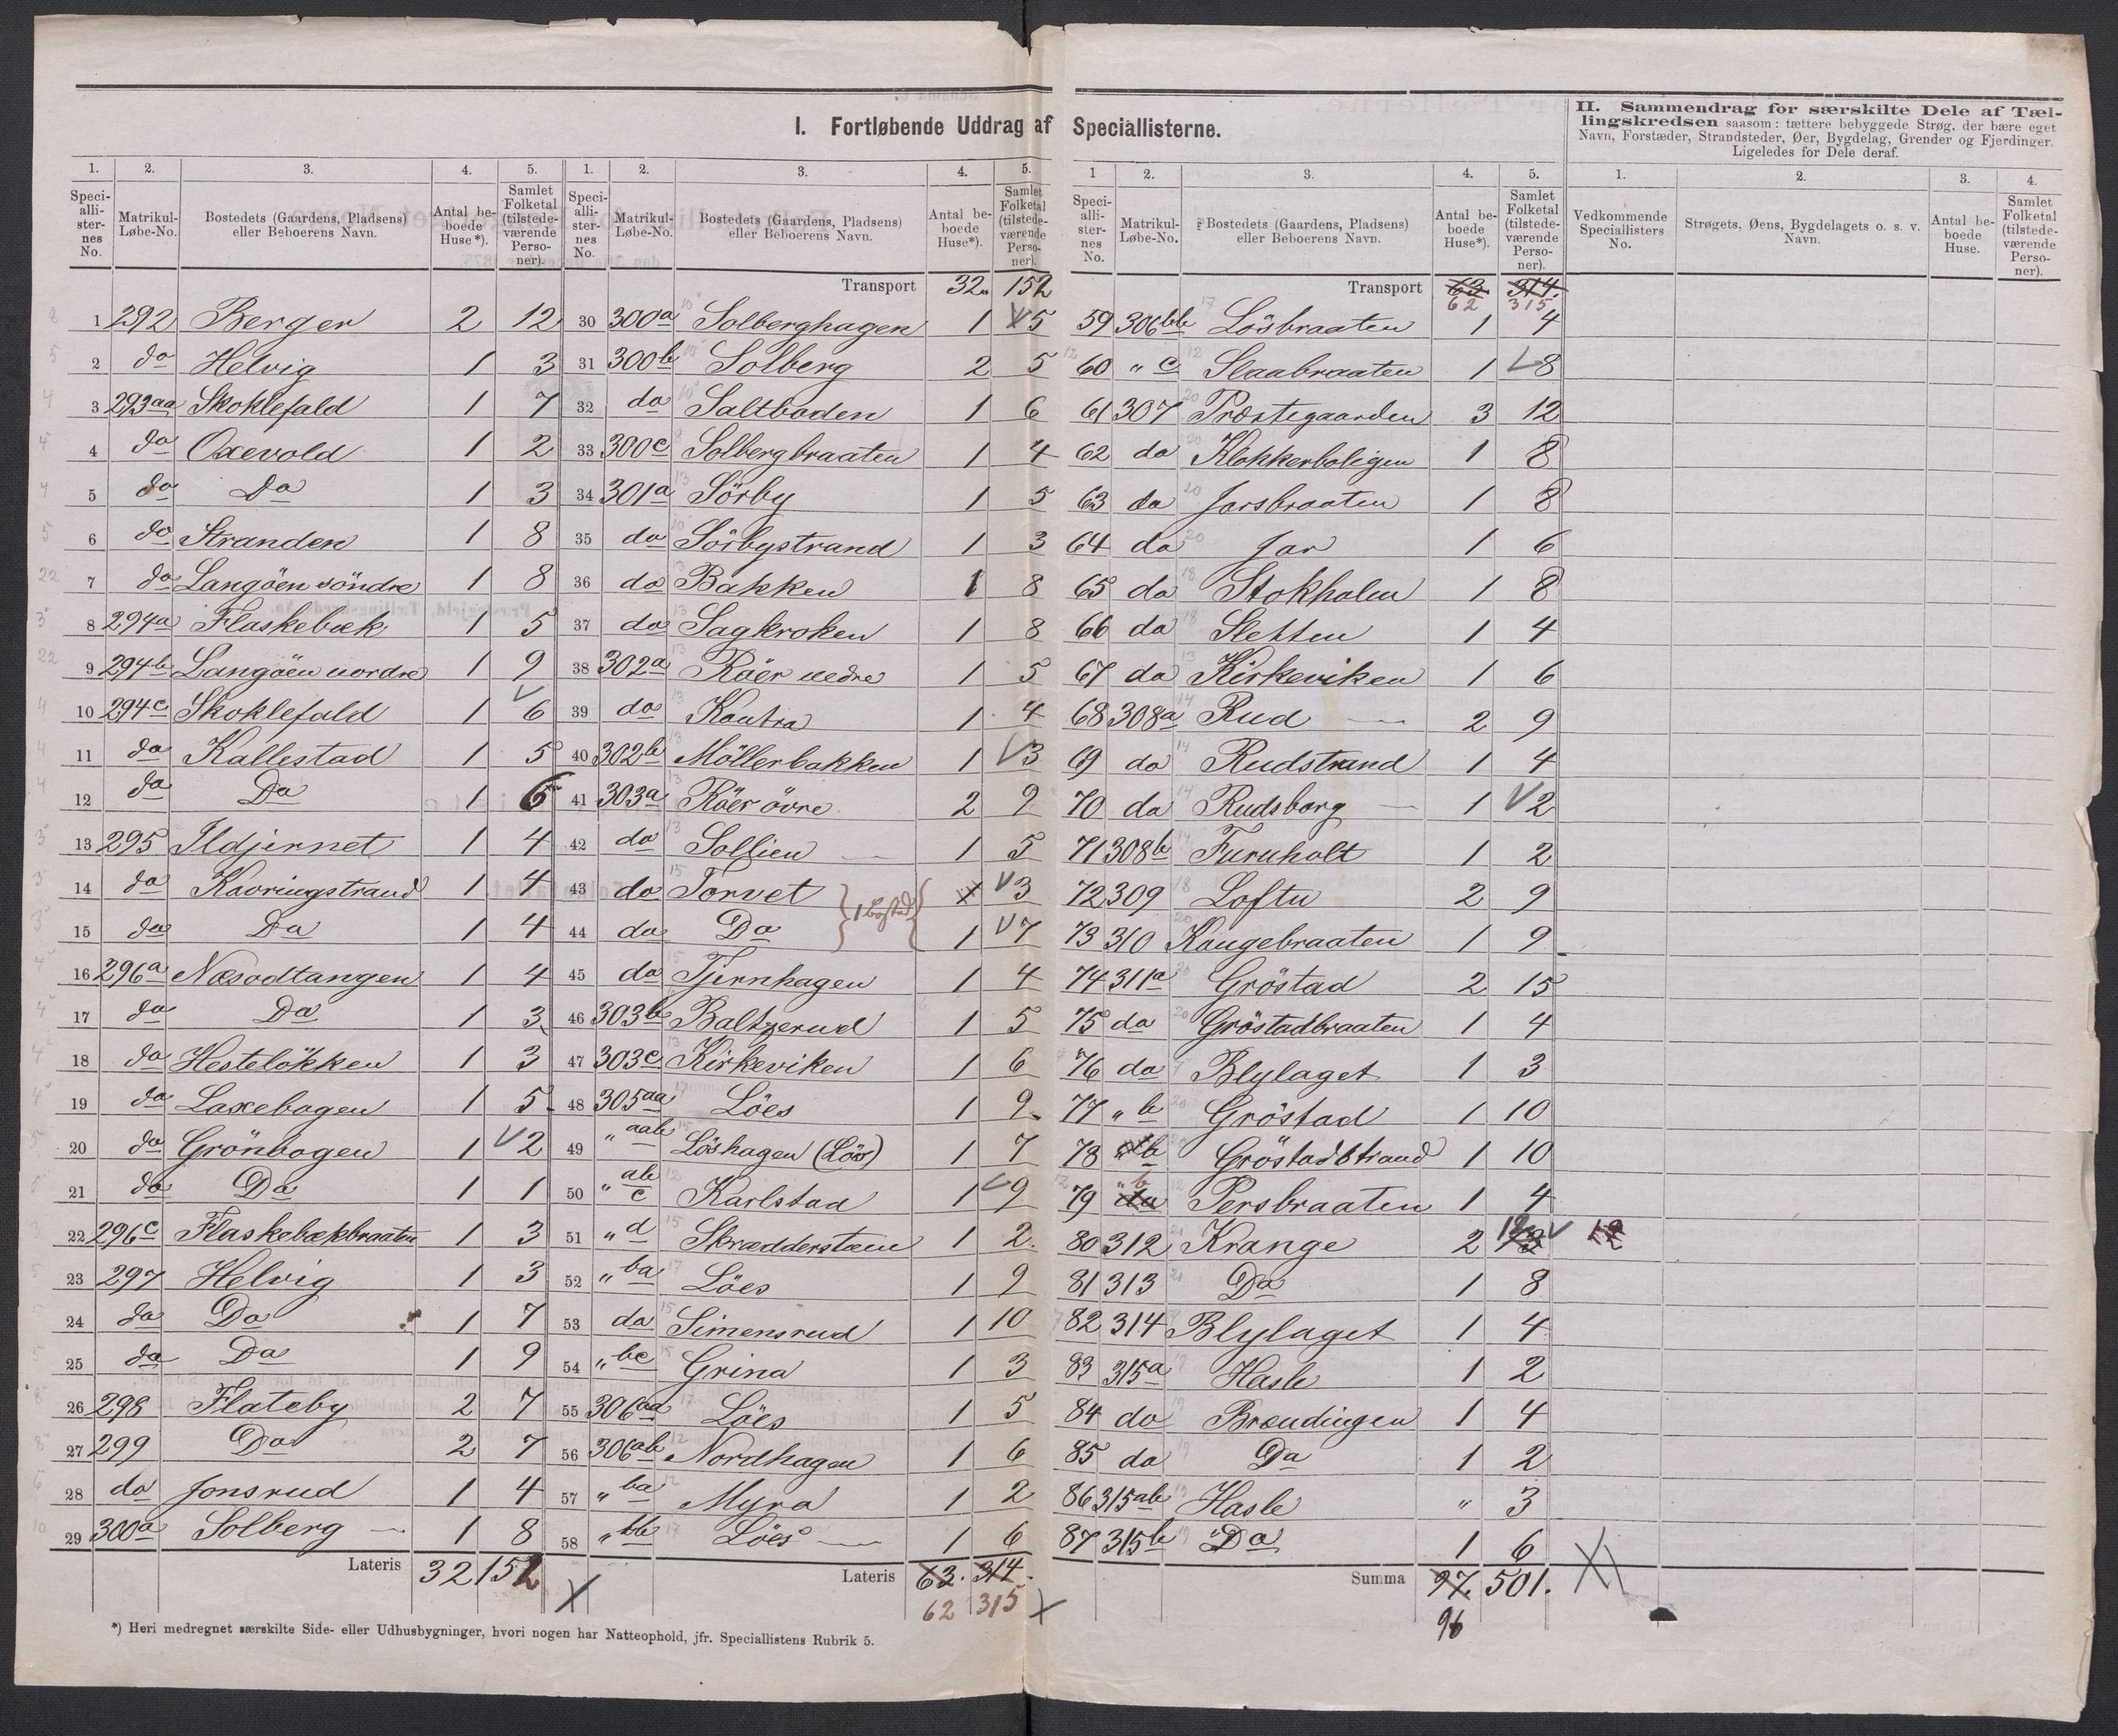 I. Fortløbende Uddrag af Speciallisterne.
1. 2. 3. 4. 5.
Speciallisternes No. Matrikul-Løbe-No. Bostedets (Gaardens, Pladsens) eller Beboerens Navn. Antal beboede Huse*). Samlet Folketal (tilstedeværende Personer).
1 292 Berger 2 12
2 do Helvig 1 3
3 293aa Skoklefald 1 7
4 do Oxevold 1 2
5 do Do 1 3
6 do Stranden 1 8
7 do Langöen söndre 1 8
8 294a Flaskebæk 1 5
9 294b Langöen nordre 1 9
10 294c Skoklefald 1 6
11 do Kallestad 1 5
12 do Do 1 6
13 295 Ildjernet 1 4
14 do Kavringstrand 1 4
15 do Do 1 4
16 296a Næsodtangen 1 4
17 do Do 1 3
18 do Hestelökken 1 3
19 do Laxebogen 1 5
20 do Grönbogen 1 2
21 do Do 1 1
22 296c Flaskebækbraaten 1 3
23 297 Helvig 1 3
24 do Do 1 7
25 do Do 1 9
26 298 Flateby 2 7
27 299 Do 2 7
28 do Jonsrud 1 4
29 300a Solberg 1 8
Lateris 32 152
1. 2. 3. 4. 5.
Speciallisternes No. Matrikul-Løbe-No. Bostedets (Gaardens, Pladsens) eller Beboerens Navn. Antal beboede Huse*). Samlet Folketal (tilstedeværende Personer).
Transport 32 152
30 300a Solberghagen 1 5
31 300b Solberg 2 5
32 do Saltboden 1 6
33 300c Solbergbraaten 1 4
34 301a Sörby 1 5
35 do Sörbystrand 1 3
36 do Bakken 1 8
37 do Sagkroken 1 8
38 302a Röer nedre 1 5
39 do Kontra 1 4
40 302b Möllerbakken 1 3
41 303a Röer övre 2 9
42 do Sollien 1 5
43 do Torvet 3
1 Bosted
44 do Do 1 7
45 do Tjernhagen 1 4
46 303b Baltzerud 1 5
47 303c Kirkeviken 1 6
48 305aa Löes 1 9
49 " aab Löshagen (Löes) 1 7
50 " ab c Karlstad 1 9
51 " d Skrædderstuen 1 2
52 " ba Löes 1 9
53 do Simensrud 1 10
54 " bc Grina 1 3
55 306aa Löes 1 5
56 306ab Nordhagen 1 6
57 " ba Myra 1 2
58 " bb Löes 1 6
Lateris 63. 314.
62 315
1 2. 3. 4. 5.
Speciallisternes No. Matrikul-Løbe-No. Bostedets (Gaardens, Pladsens) eller Beboerens Navn. Antal beboede Huse*). Samlet Folketal (tilstedeværende Personer).
Transport 63 314
62 315
59 306bb Lösbraaten 1 4
60 " c Slaabraaten 1 8
61 307 Præstegaarden 3 12
62 do Klokkerboligen 1 8
63 do Jarsbraaten 1 8
64 do Jar 1 6
65 do Stokholm 1 8
66 do Sletten 1 4
67 do Kirkeviken 1 6
68 308a Rud 2 9
69 do Rudstrand 1 4
70 do Rudsborg 1 2
71 308b Furuholt 1 2
72 309 Loftu 2 9
73 310 Kongebraaten 1 9
74 311a Gröstad 2 15
75 do Gröstadbraaten 1 4
76 do Blylaget 1 3
77 " b Gröstad 1 10
78 " b Gröstadstrand 1 10
79 " b Persbraaten 1 4
80 312 Krange 2 12
81 313 Do 1 8
82 314 Blylaget 1 4
83 315a Hasle 1 2
84 do Brændingen 1 4
85 do Do 1 2
86 315ab Hasle " 3
87 315b Do 1 6
Summa 97. 501.
96
II. Sammendrag for særskilte Dele af Tællingskredsen saasom: tættere bebyggede Strøg, der bære eget Navn, Forstæder, Strandsteder, Øer, Bygdelag, Grender og Fjerdinger. Ligeledes for Dele deraf.
1. 2. 3. 4.
Vedkommende Speciallisters No. Strøgets, Øens, Bygdelagets o. s. v. Navn. Antal beboede Huse. Samlet Folketal (tilstedeværende Personer).
*) Heri medregnet særskilte Side- eller Udhusbygninger, hvori nogen har Natteophold, jfr. Speciallistens Rubrik 5.